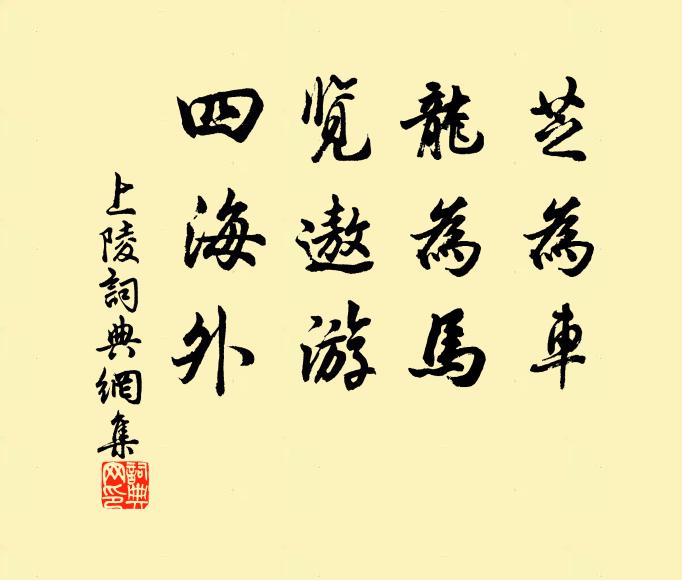 芝為車
龍為馬
覽遨游
四海外
上陵詞典網集
詞典
网印